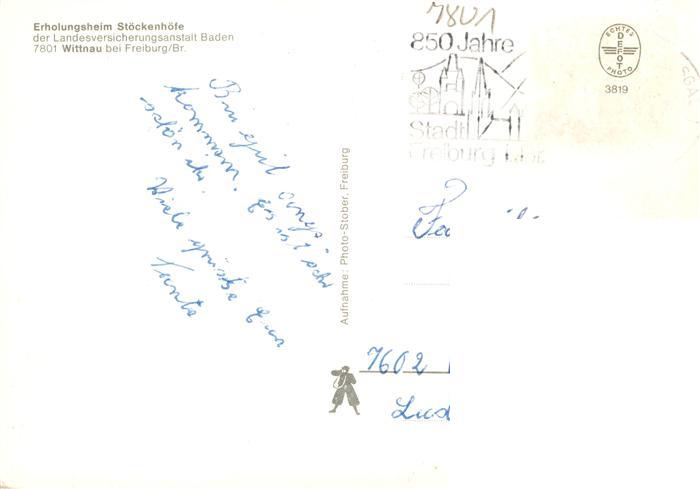 Erholungsheim Stöckenhöfe
der Landesversicherungsanstalt Baden
7801 Wittnau bei Freiburg/Br.
Bin gut ange-
kommen. Es ist sehr
schön hir.
Viele grüsse Eure
Tante
Aufnahme: Photo-Stober, Freiburg
7801
850 Jahre
Stadt
Freiburg
ECHTES
DEFOT
PHOTO
3819
Fa
7602
Lud